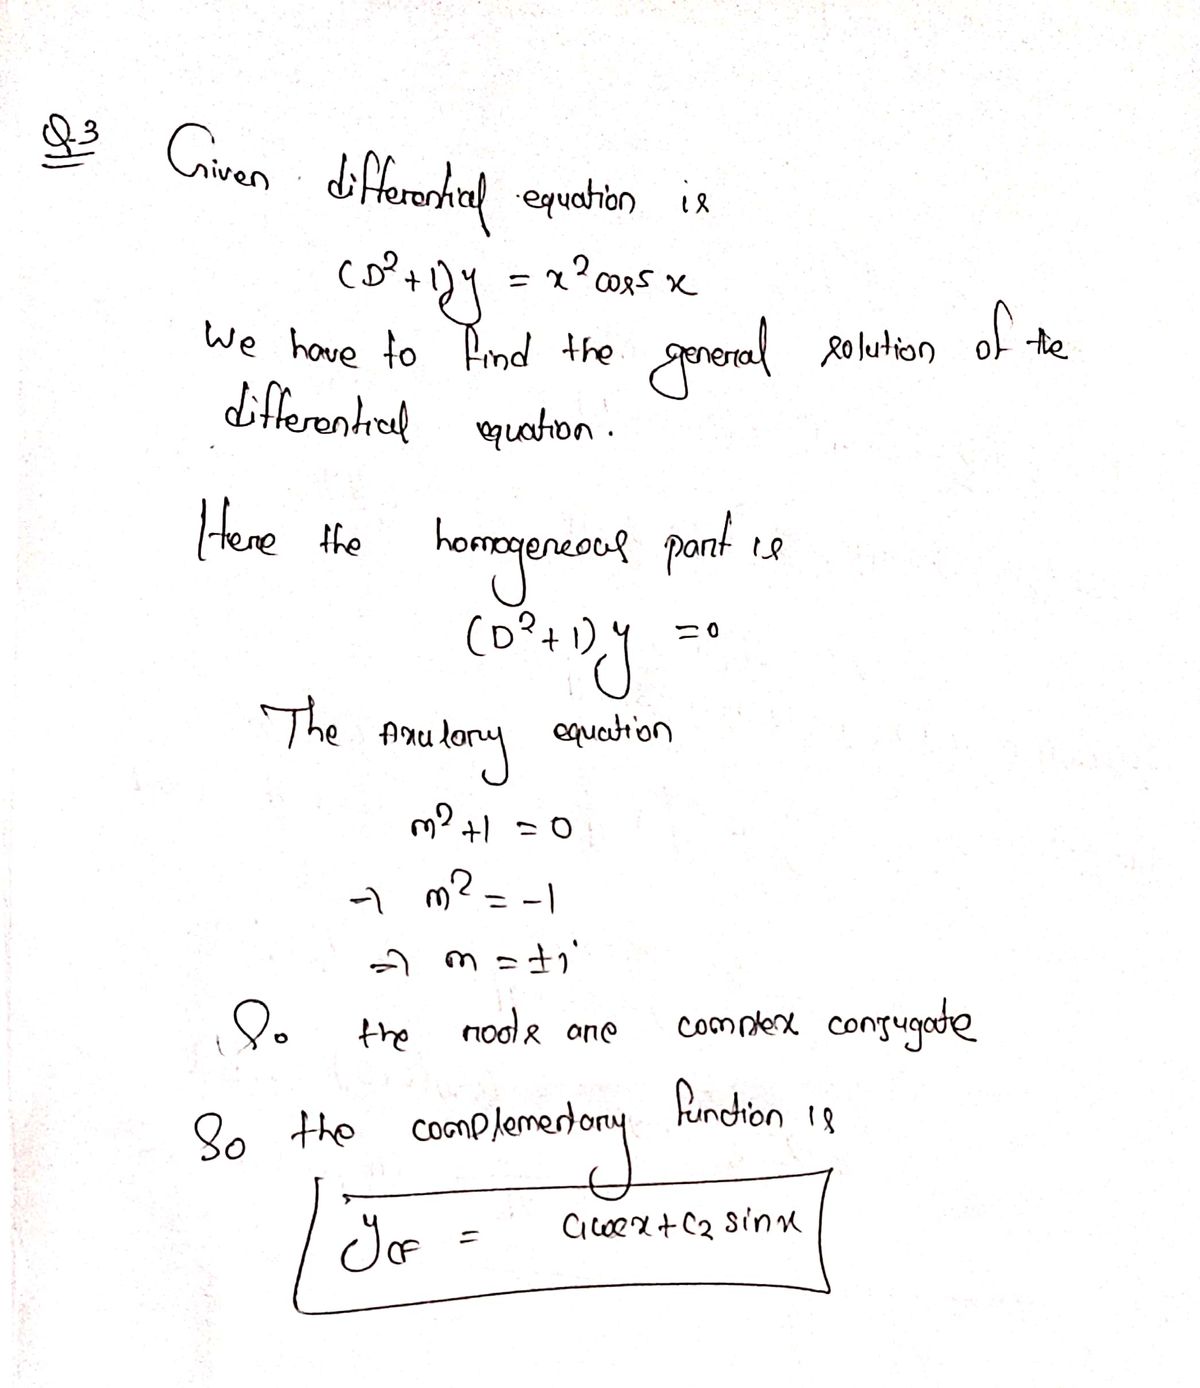 Q.3 Given differential equation is
(D²+1)y = x² cos5x
We have to find the general solution of the
differential equation.
Here the homogeneous part is
(D²+1)y = 0
The Axulary equation
m²+1 = 0
⇒ m² = -1
⇒ m = ±i
So the roots are complex conjugate
So the complementary function is
y_CF = C₁cosx + C₂ sinx